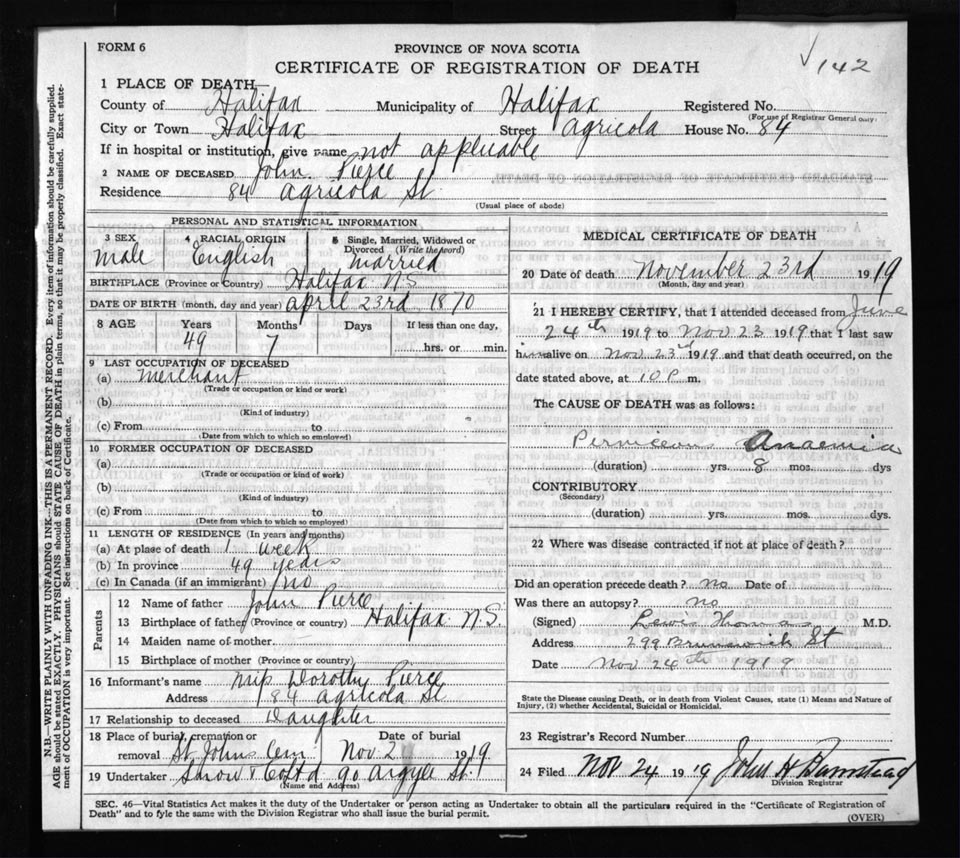 FORM 6
PROVINCE OF NOVA SCOTIA
CERTIFICATE OF REGISTRATION OF DEATH
√ 142
1 PLACE OF DEATH
County of Halifax Municipality of Halifax Registered No.
(For use of Registrar General only)
City or Town Halifax Street Agricola House No. 84
If in hospital or institution, give name not applicable
2 NAME OF DECEASED John Pierce
Residence 84 Agricola St
(Usual place of abode)
PERSONAL AND STATISTICAL INFORMATION
3 SEX 4 RACIAL ORIGIN 5 Single, Married, Widowed or Divorced (Write the word)
Male English Married
BIRTHPLACE (Province or Country) Halifax N.S
DATE OF BIRTH (month, day and year) April 23rd 1870
8 AGE Years Months Days If less than one day,
49 7 hrs. or min.
9 LAST OCCUPATION OF DECEASED
(a) Merchant
(Trade or occupation or kind or work)
(b)
(Kind of industry)
(c) From to
(Date from which to which so employed)
10 FORMER OCCUPATION OF DECEASED
(a)
(Trade or occupation or kind of work)
(b)
(Kind of industry)
(c) From to
(Date from which to which so employed)
11 LENGTH OF RESIDENCE (In years and months)
(a) At place of death 1 week
(b) In province 49 years
(c) In Canada (if an immigrant) no
Parents
12 Name of father John Pierce
13 Birthplace of father (Province or country) Halifax N.S.
14 Maiden name of mother
15 Birthplace of mother (Province or country)
16 Informant's name Miss Dorothy Pierce
Address 84 Agricola St
17 Relationship to deceased Daughter
18 Place of burial, cremation or removal Date of burial
St Johns Cem Nov 2 1919
19 Undertaker Snow & Co Ltd 90 Argyle St.
(Name and Address)
MEDICAL CERTIFICATE OF DEATH
20 Date of death November 23rd 1919
(Month, day and year)
21 I HEREBY CERTIFY, that I attended deceased from June
24th 1919 to Nov 23 1919 that I last saw
him alive on Nov 23rd 1919 and that death occurred, on the
date stated above, at 10 P m.
The CAUSE OF DEATH was as follows:
Pernicious Anaemia
(duration) yrs. 8 mos. dys
CONTRIBUTORY
(Secondary)
(duration) yrs. mos. dys.
22 Where was disease contracted if not at place of death?
Did an operation precede death? No Date of
Was there an autopsy? No
(Signed) Lewis Thomas M.D.
Address 299 Brunswick St
Date Nov 24th 1919
State the Disease causing Death, or in death from Violent Causes, state (1) Means and Nature of
Injury, (2) whether Accidental, Suicidal or Homicidal.
23 Registrar's Record Number
24 Filed Nov 24 1919 John H Barnstead
Division Registrar
SEC. 46—Vital Statistics Act makes it the duty of the Undertaker or person acting as Undertaker to obtain all the particulars required in the "Certificate of Registration of
Death" and to fyle the same with the Division Registrar who shall issue the burial permit.
(OVER)
N.B.—WRITE PLAINLY WITH UNFADING INK—THIS IS A PERMANENT RECORD. Every item of information should be carefully supplied.
AGE should be stated EXACTLY. PHYSICIANS should STATE CAUSE OF DEATH in plain terms, so that it may be properly classified. Exact state-
ment of OCCUPATION is very important. See instructions on back of Certificate.